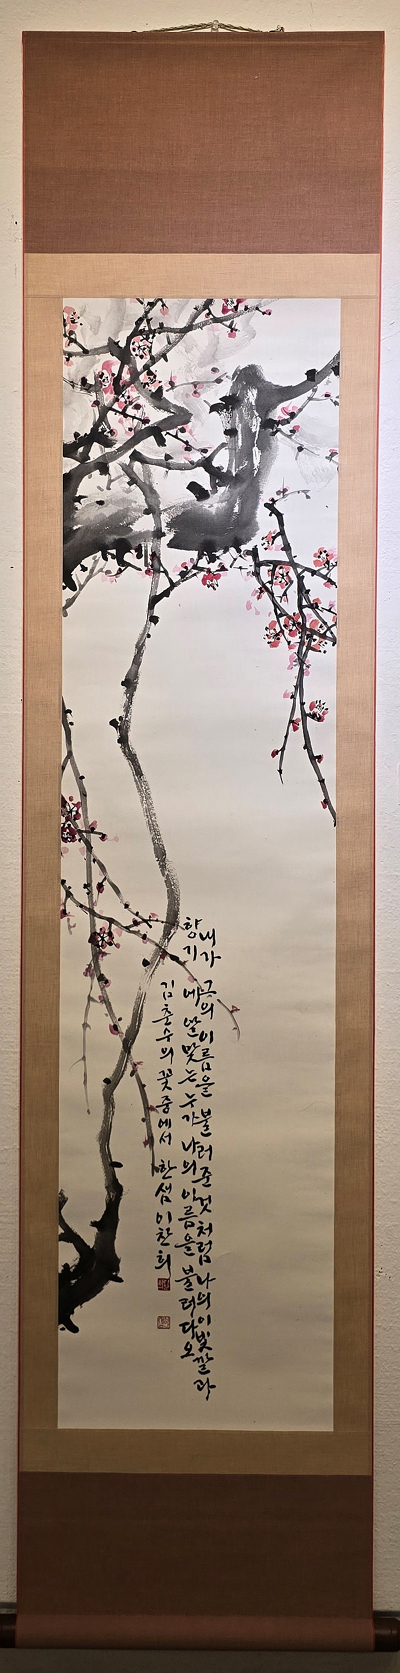 내가 그의 이름을 불러준 것처럼 나의 이 빛깔과
향기에 알맞는 누가 나의 이름을 불러다오
김춘수의 꽃 중에서 한샘 이찬희